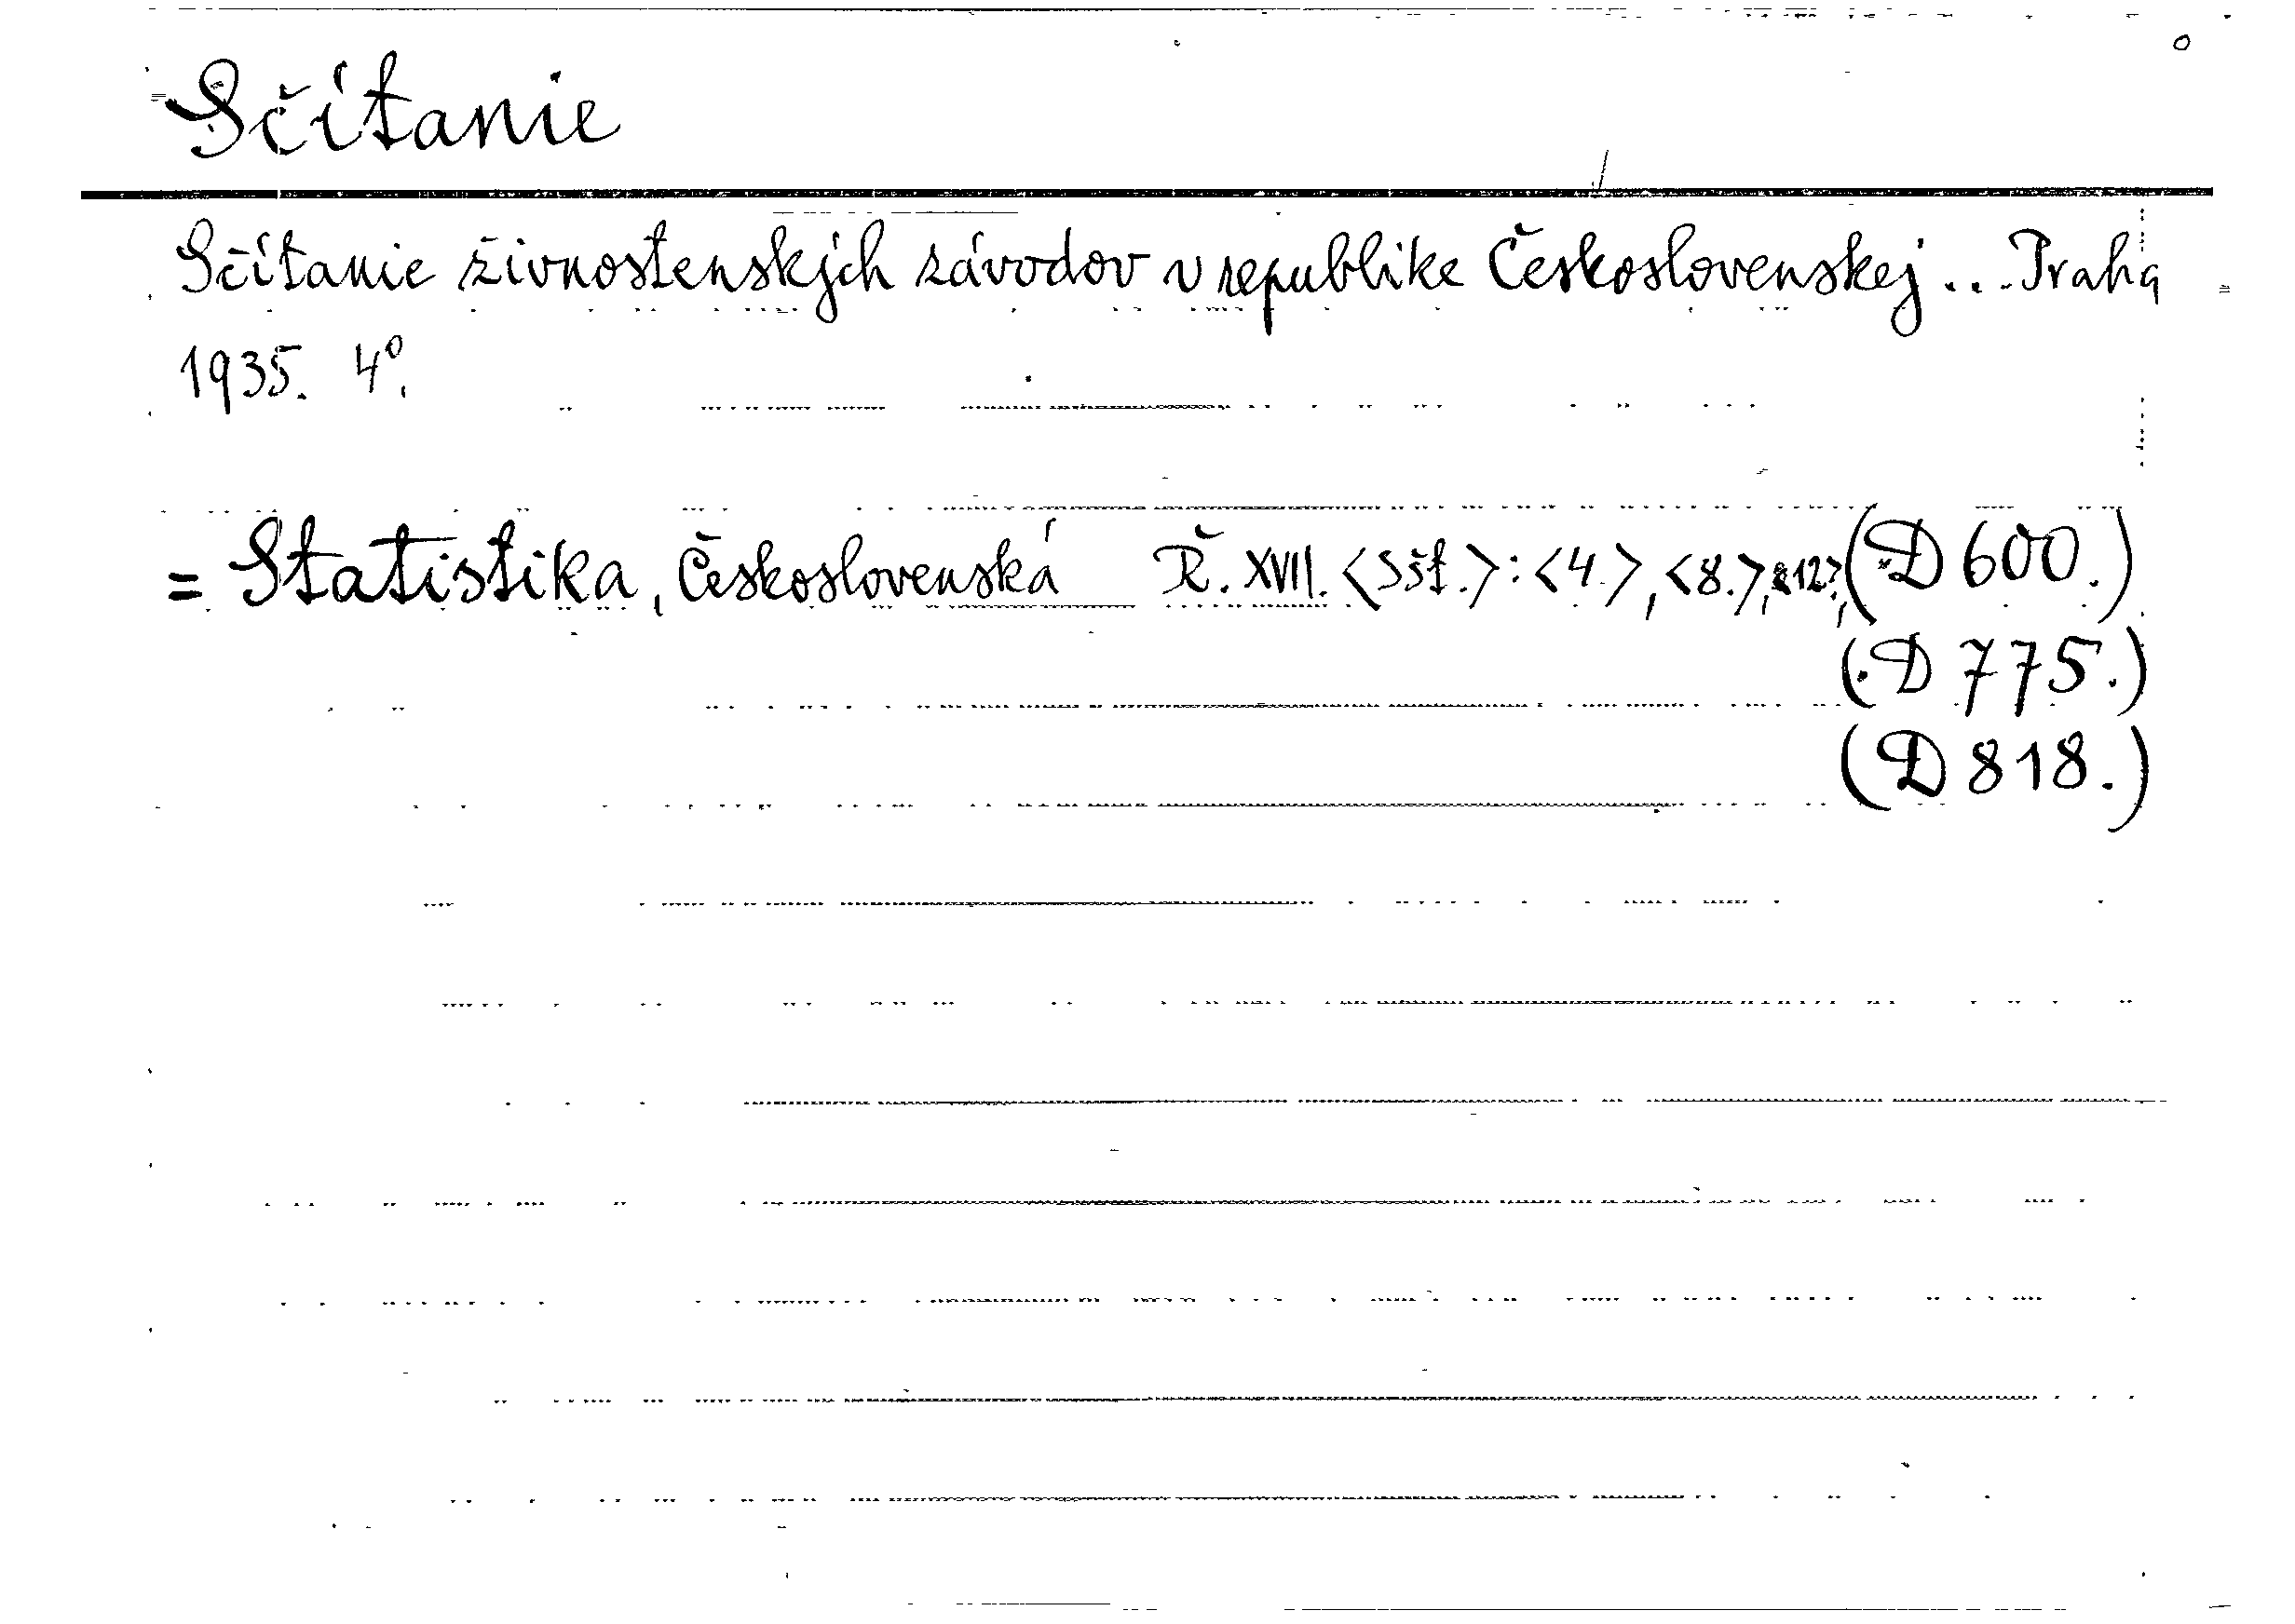 Sčítanie
Sčítanie živnostenských závodov v republike Československej... Praha
1935. 4°.
= Statistika, Československá Ř. XVII. <Sšt.>: <4.>, <8.>, <12>, (D 600.)
(D 775.)
(D 818.)